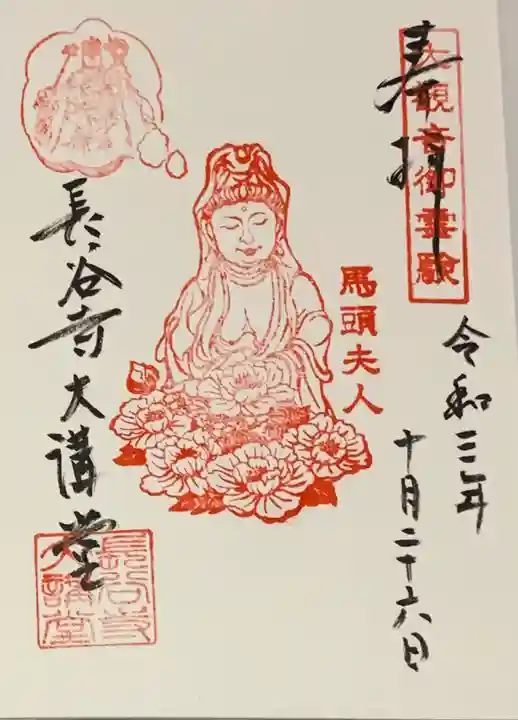 奉拝
大観音御霊験
令和三年
十月二十六日
馬頭夫人
長谷寺大講堂
長谷寺
大講堂